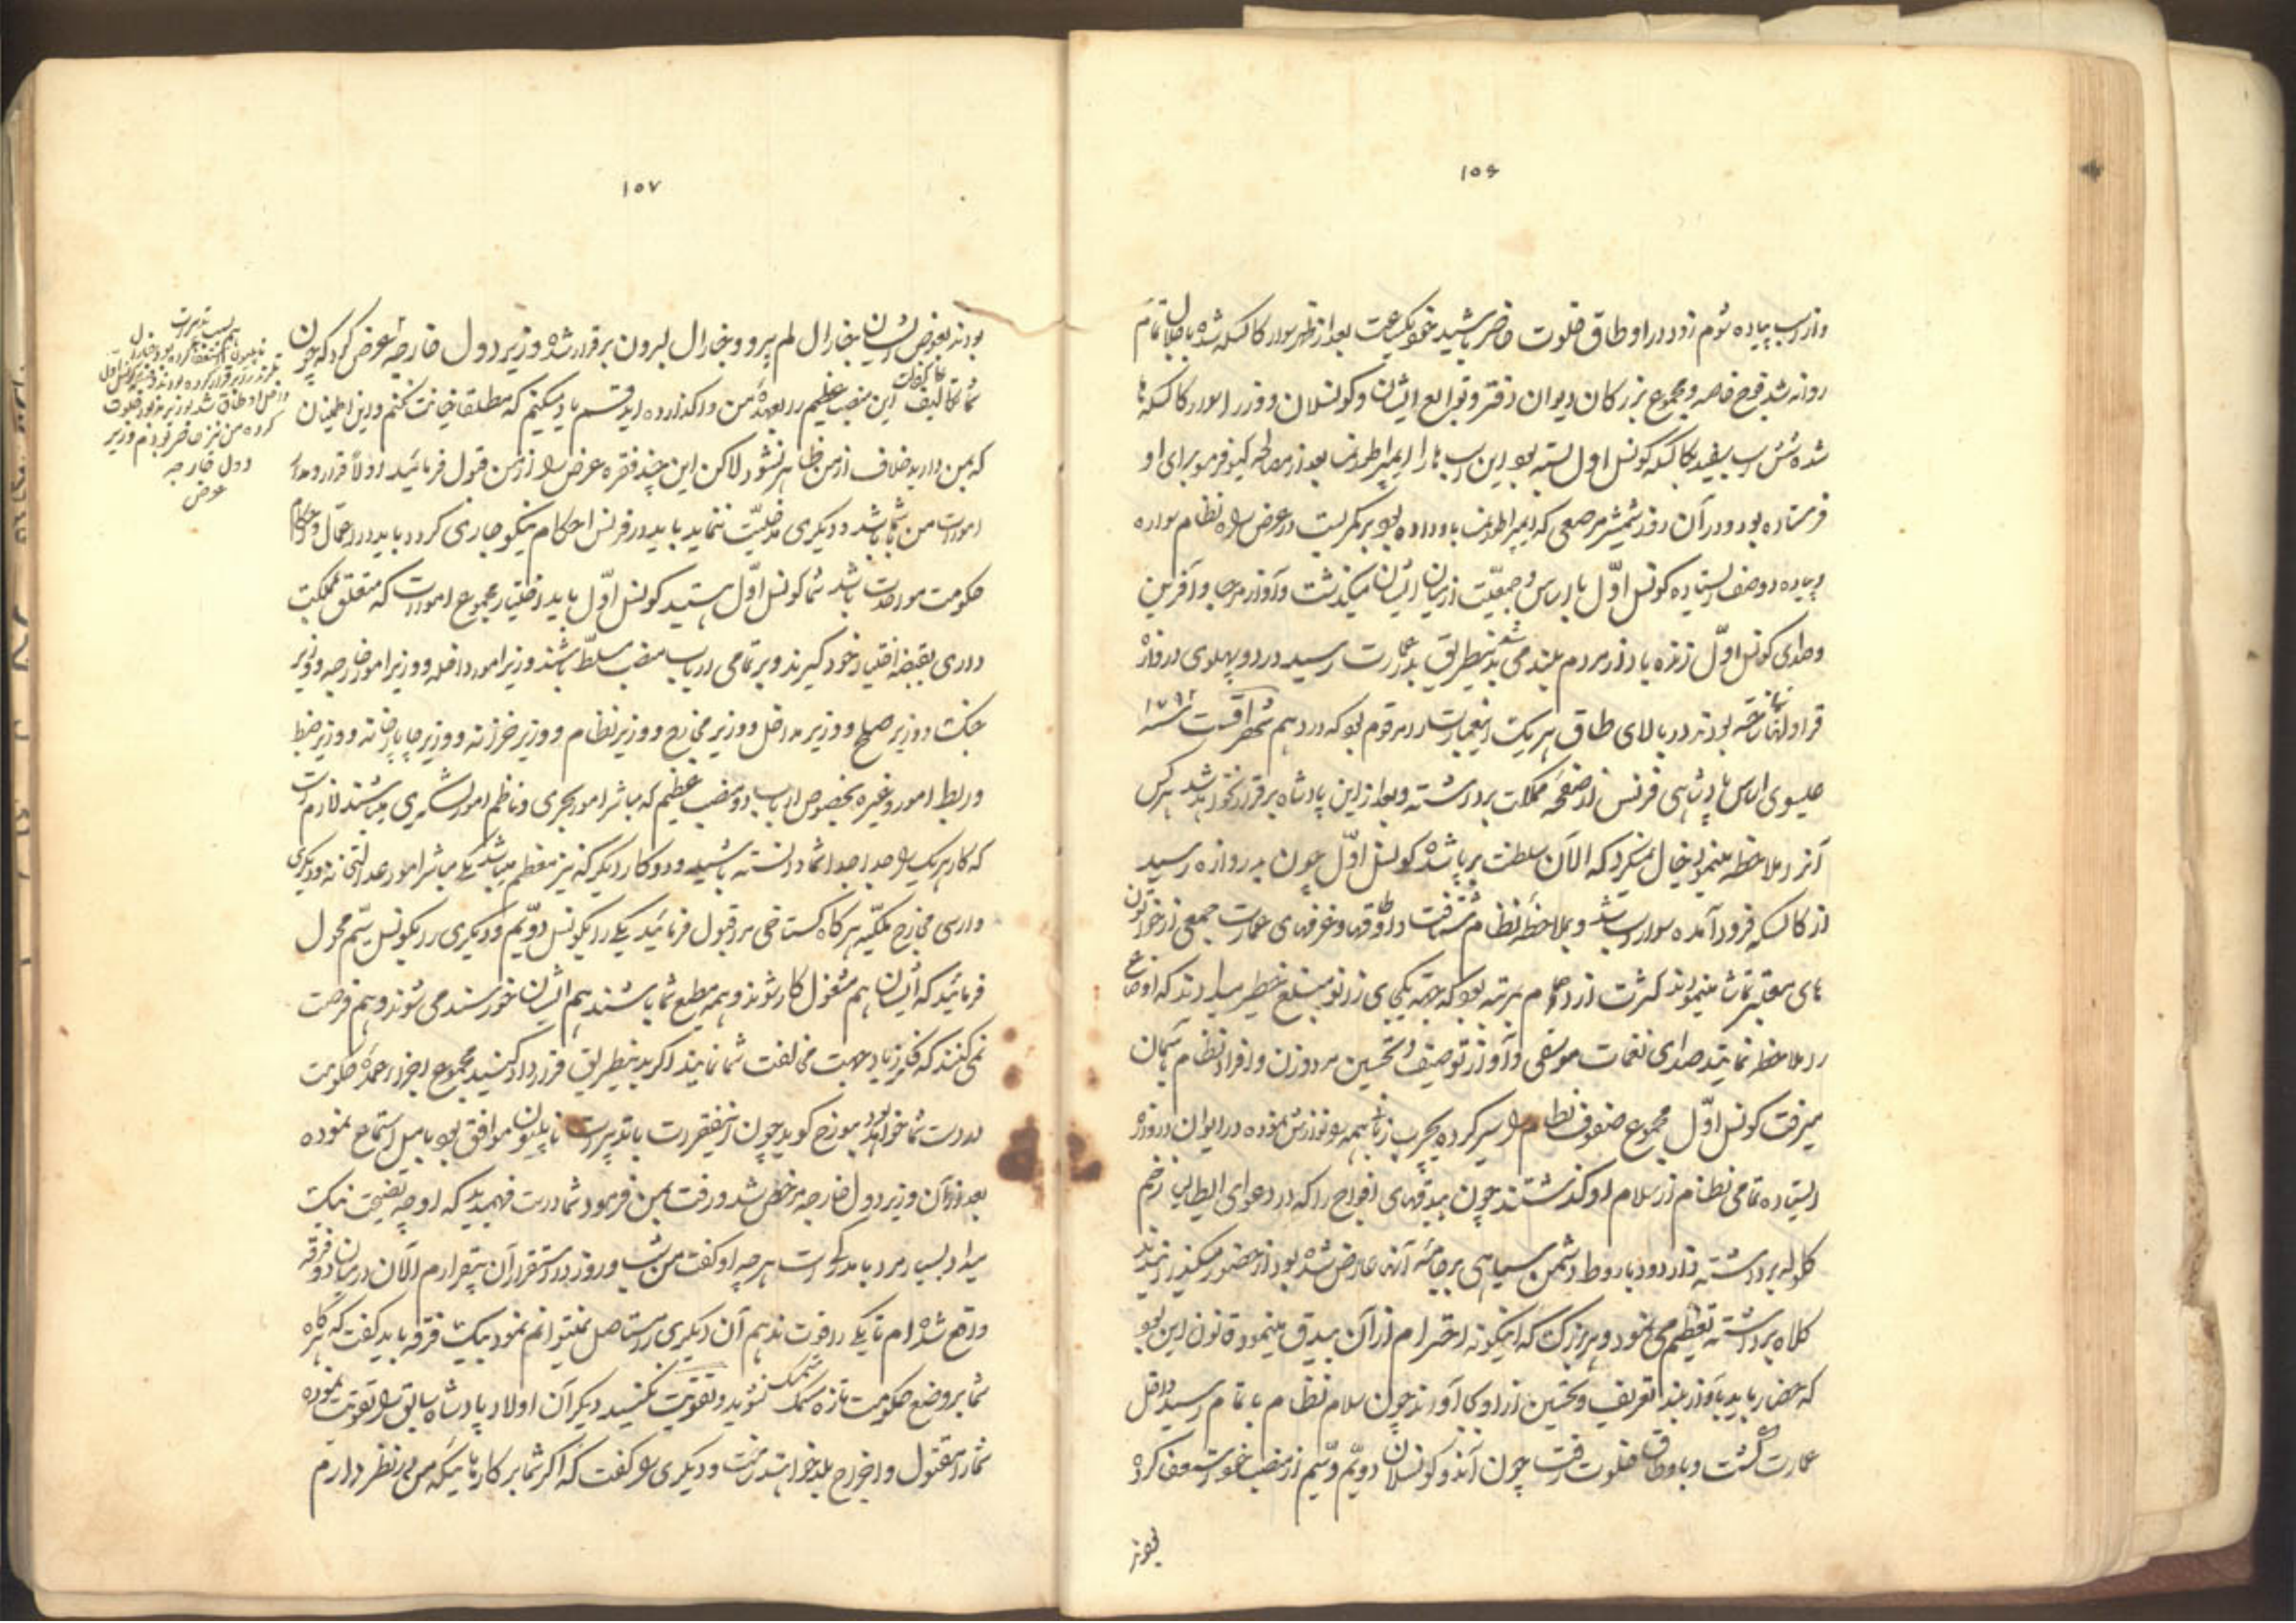 ١٥٦
و از اسب پیاده شوم زود در اوطاق خلوت حاضر باشید خود یکساعت بعد از ظهر سوار کالسکه شده با جلال تمام
روانه شد فوج خاصه و مجموع بزرکان دیوان دفتر و توابع ایشان و کونسلان و وزراء سوار کالسکه ها
شده شش اسب سفید بکالسکه کونسل اول بسته بود این اسب ها را ایمپراطور نمسا بعد از مصالحه کمپو فرمیو برای او
فرستاده بود و در آن روز شمشیر مرصعی که ایمپراطور نمسا باو داده بود بر کمر بست در عرض راه نظام سواره
و پیاده دو صف ایستاده کونسل اوّل با اساس و جمعیّت از میان ایشان میکذشت و آواز مرحبا و آفرین
و صدای کونسل اوّل زنده باد از مردم بلند می شد بدینطریق بعمارت رسید در دو پهلوی دروازه
قراولخانه ساخته بودند در بالای طاق هر یک اینعبارت مرقوم بود که در دهم شهر اقست سنه ١٧٩٢
جلوی اساس پادشاهی فرنس از صفحه مملکت برداشته و بعد از این پادشاه برقرار نخواهد شد هر کس
آنرا ملاحظه مینمود خیال میکرد که الآن سلطنت برپا شده کونسل اوّل چون بدروازه رسید
از کالسکه فرود آمده سوار اسب شد و بملاحظه نظام شتافت در اطاقها و غرفهای عمارت جمعی از خواتون
های معتبر تماشا مینمودند کثرت ازدحام بمرتبه بود که جهة یک جای زانو مبلغ خطیر میدادند که اوضاع
را ملاحظه نمایند صدای نغمات موسیقی و آواز توصیف و تحسین مرد و زن و افراد نظام بآسمان
میرفت کونسل اوّل مجموع صفوف نظام را سیر کرده بچرب زبانی همه را نوازش نموده در ایوان دروازه
ایستاده تمامی نظام از سلام او کذشتند چون بیدقهای افواج را که در دعوای ایطالیا زخم
کلوله برداشته و از دود باروط دشمن سیاهی بر جامه آنها عارض شده بود از حضور میکذرانیدند
کلاه برداشته تعظیم می نمود و هر بزرک که اینکونه احترام از آن بیدق مینمود قانون این بود
که حضار باید بآواز بلند تعریف و تحسین از او بجا آورند چون سلام نظام باتمام رسید داخل
عمارت کشت و باوطاق خلوت رفت چون آنروز کونسلان دویّم و سیّم از منصب خود استعفا کرده
بودند
١٥٧
بودند بعوض ایشان جنارال لم پرو و جنارال لبرون برقرار شده وزیر دول خارجه عرض کرد که چون
شما تکالیف این منصب عظیم را بعهده من واکذارده اید قسم یاد میکنم که مطلقا خیانت نکنم و این اطمینان
که بمن دارید خلاف از من ظاهر نشود لاکن این چند فقره عرض را از من قبول فرمائید اولاً قرار و مدار
امورات من با شما باشد و دیکری مدخلیّت ننماید باید در فرنس احکام نیکو جاری کردد باید در اعمال و احکام
حکومت مواحدت باشد شما کونسل اوّل هستید کونسل اوّل باید اختیار مجموع امورات که متعلق بمملکت
داری بقبضه اختیار خود کیرند و بر تمامی ارباب منصب مسلّط باشند وزیر امور داخله و وزیر امور خارجه و وزیر
جنک و وزیر صلح و وزیر مداخل و وزیر مخارج و وزیر نظام و وزیر خزانه و وزیر چاپارخانه و وزیر ضبط
و ربط امور و غیره بخصوص ارباب دو منصب عظیم که مباشر امور بحری و ناظم امور لشکری میباشند لازم است
که کار هر یک را جدا جدا شما دانسته باشید و دو کار دیکر که نیز معظم میباشد یکی مباشر امور عدالتخانه و دیکری
وارسی مخارج ملکیّه هر کاه کستاخی مرا قبول فرمائید یکی را بکونسل دویّم و دیکری را بکونسل سیّم محول
فرمائید که ایشان هم مشغول کار شوند و همه مطیع شما باشند هم ایشان خورسند می شوند و هم فرصت
نمی کنند که فکر زیاد جهت مخالفت شما نمایند اکر بدینطریق قرارداد کنید مجموع اجزاء عمده حکومت
در دست شما خواهد بود مورخ کوید چون اینفقرات با تدبیرات ناپلیون موافق بود بامیل استماع نموده
بعد از آن وزیر دول خارجه مرخص شد و رفت بمن فرمود شما درست فهمیدید که او چه نصیحت نیک
میداد بسیار مرد با مدرک است هر چه او کفت من شب و روز در استقرار آن بیقرارم الآن در میان دو فرقه
واقع شده ام تا یکی را قوت ندهم آن دیکری را مستاصل نمیتوانم نمود بیک فرقه باید کفت که هر کاه
شما بر وضع حکومت تازه متمسک نشوید و تقویت نکنید دیکران اولاد پادشاه سابق را تقویت نموده
شما را مقتول و اخراج بلد خواهند ساخت و دیکری را کفت که اکر شما بر کارهائیکه من در نظر دارم
کرده من نیز حاضر بودم وزیر
دول خارجه
عرض